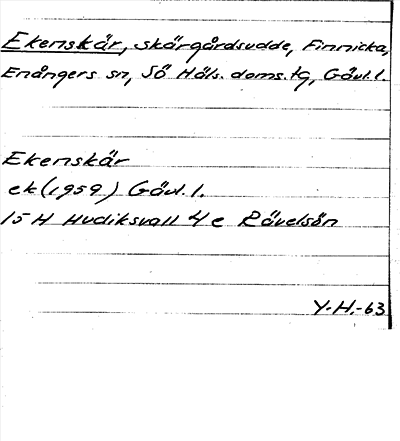 Ekenskär, skärgårdsudde, Finnicka,
Enångers sn, Sö Häls. doms. tg, Gävl. l.
Ekenskär
ek (1959) Gävl. l.
15 H Hudiksvall 4 e Rävelsön
Y.H.-63